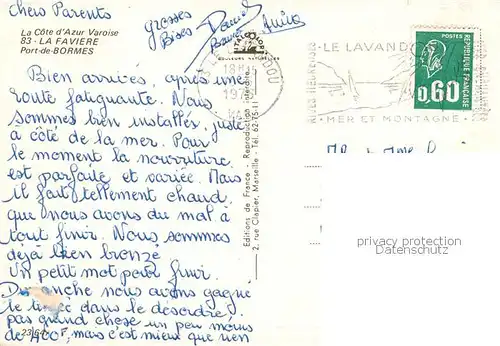 Chers Parents
grosses
Bises
La Côte d'Azur Varoise
83 - LA FAVIERE
Port-de-BORMES
Bien arrivés, après une
route fatiguante. Nous
sommes bien installés, juste
à côté de la mer. Pour
le moment la nourriture
est parfaite et variée. Mais
il fait tellement chaud,
que nous avons du mal à
tout finir. Nous sommes
déjà bien bronzé
Un petit mot pour finir.
Dimanche nous avons gagné
le tiercé dans le désordre,
pas grand chose un peu moins
de 400F, mais c'est mieux que rien
Editions de France - Reproduction interdite
2, rue Clapier, Marseille - Tél. 62-75-11
18H
LE LAVANDOU
MER ET MONTAGNE
POSTES
0,60
REPUBLIQUE FRANÇAISE
privacy protection
Datenschutz